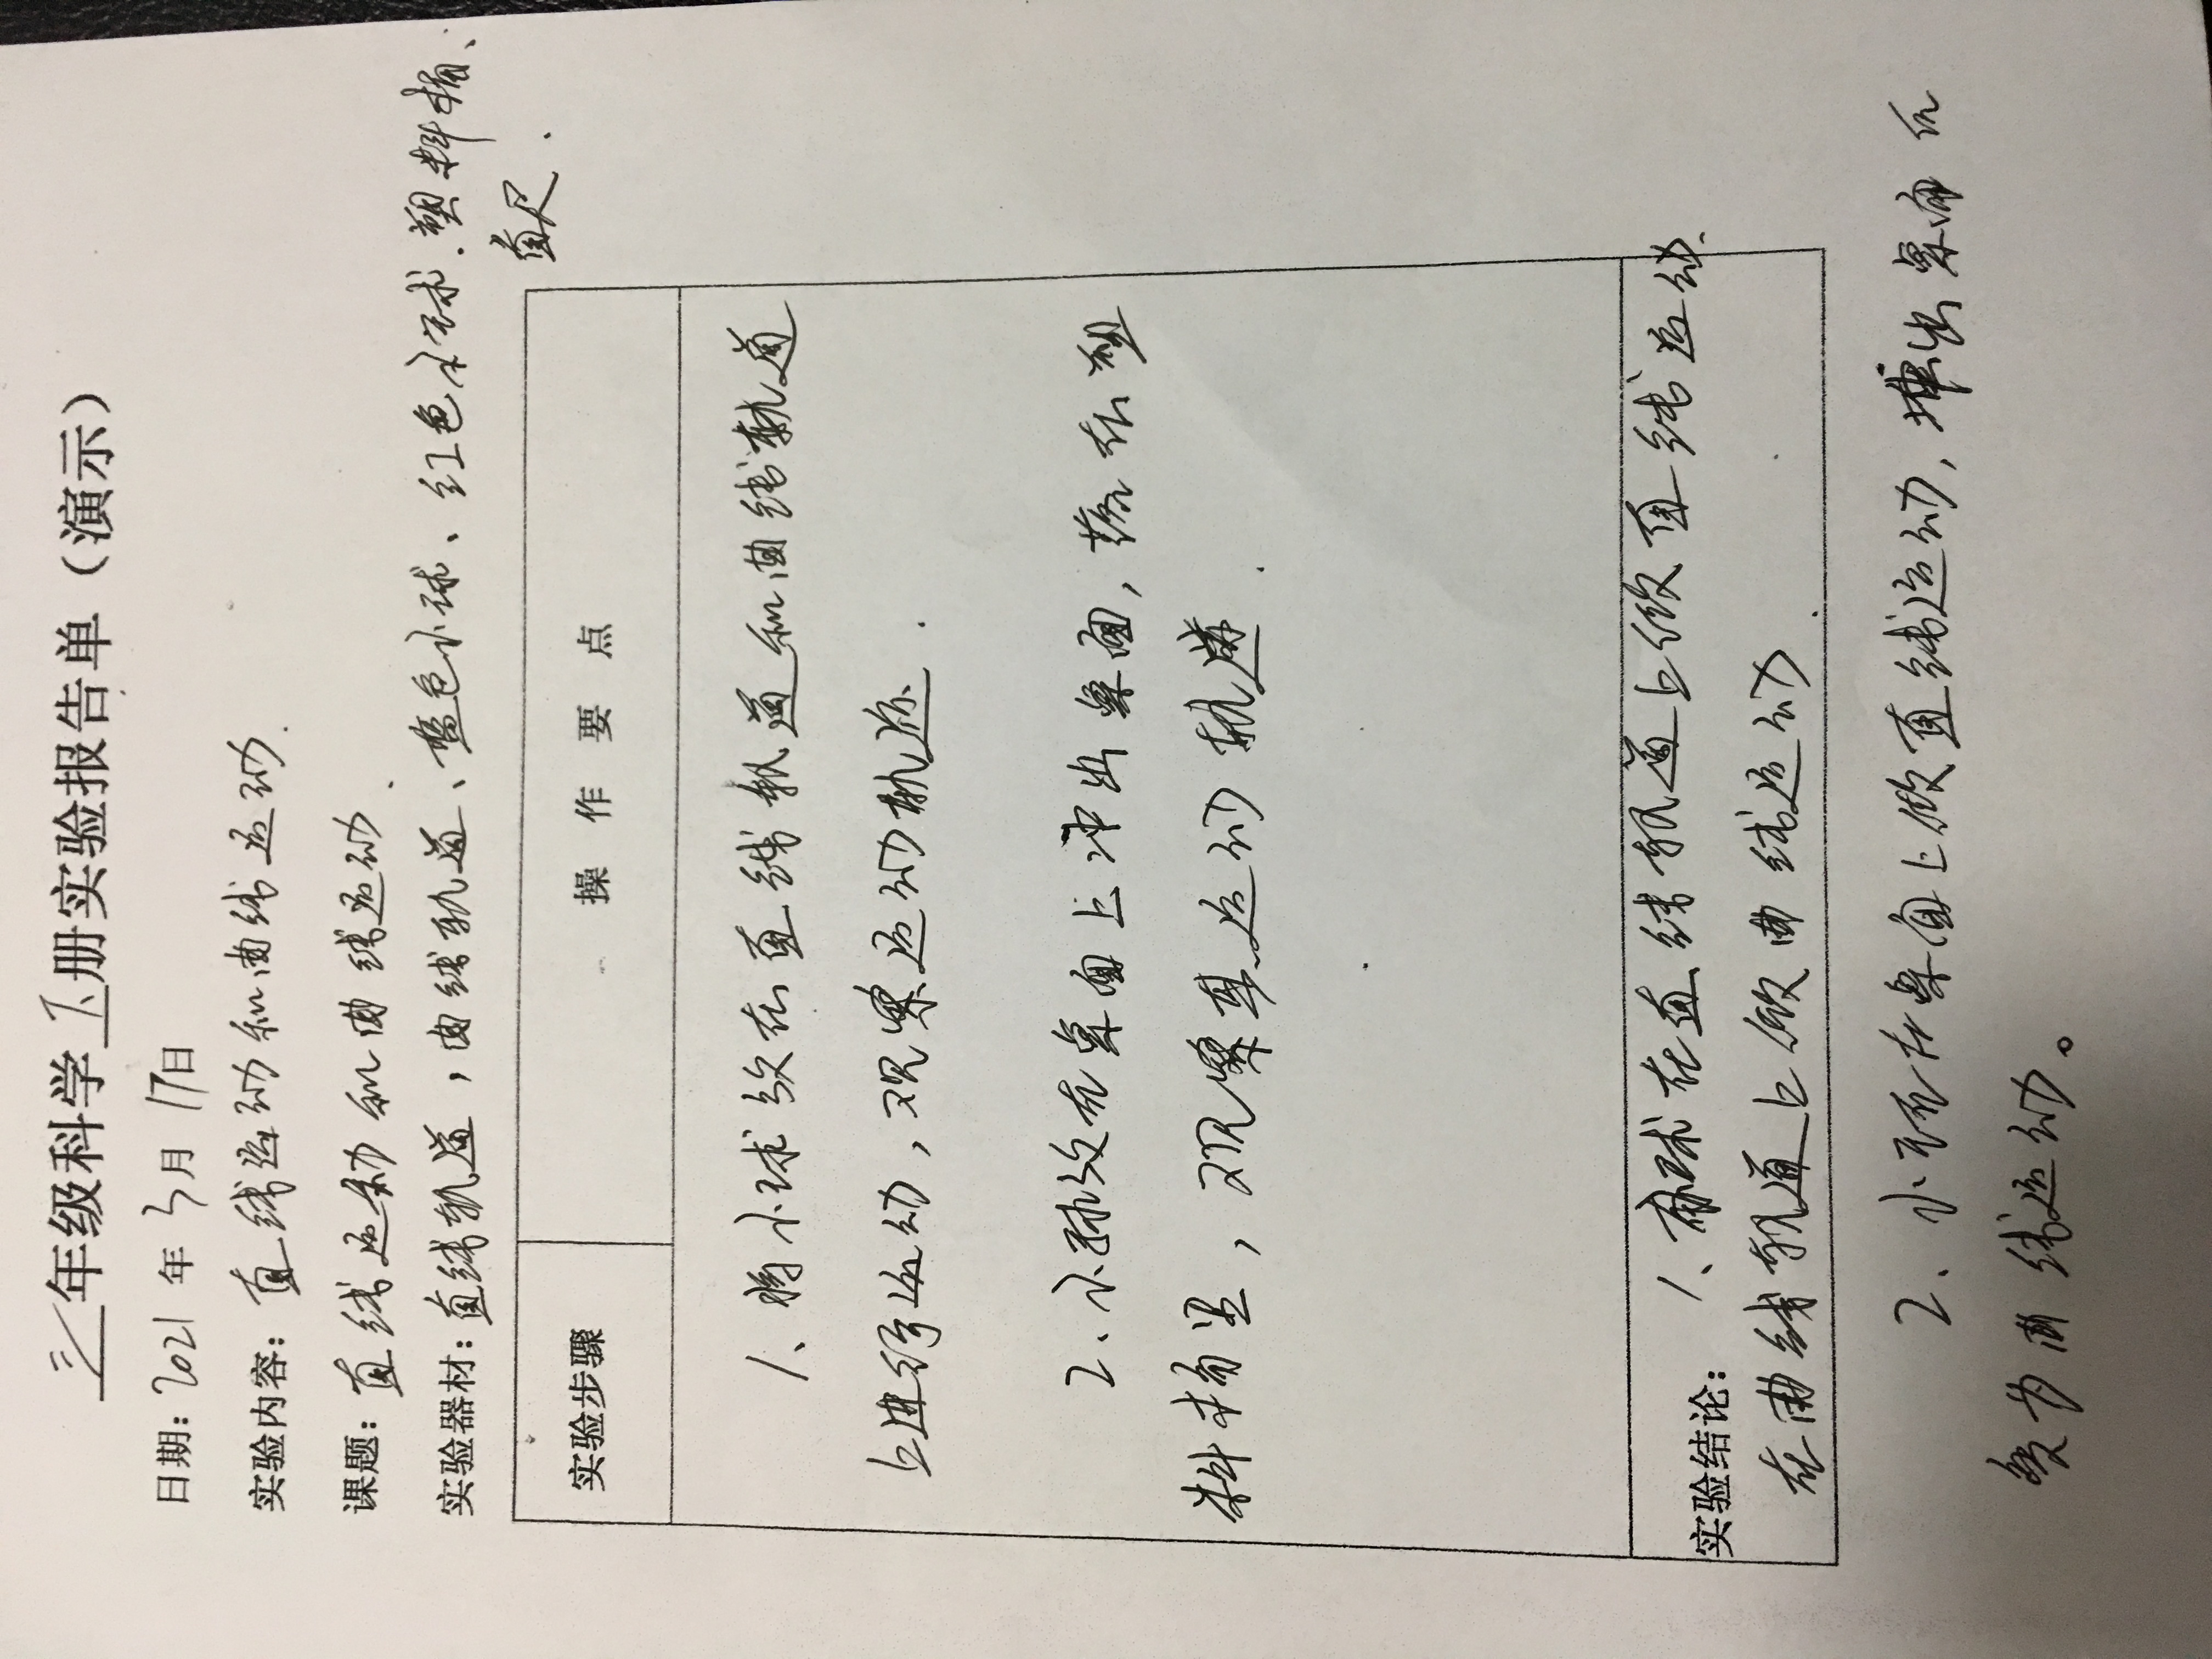 三年级科学下册实验报告单（演示）
日期：2021年3月17日
实验内容：直线运动和曲线运动.
课题：直线运动和曲线运动.
实验器材：直线轨道，曲线轨道、蓝色小球、红色小球.塑料桶、
直尺.
实验步骤 操作要点
1、将小球放在直线轨道和曲线轨道
上进行运动，观察运动轨迹.
2、小球放在桌面上冲出桌面，落在塑
料桶里，观察其运动轨迹.
实验结论：1、球在直线轨道上做直线运动.
在曲线轨道上做曲线运动.
2、小球在桌面上做直线运动，冲出桌面后
变为曲线运动。